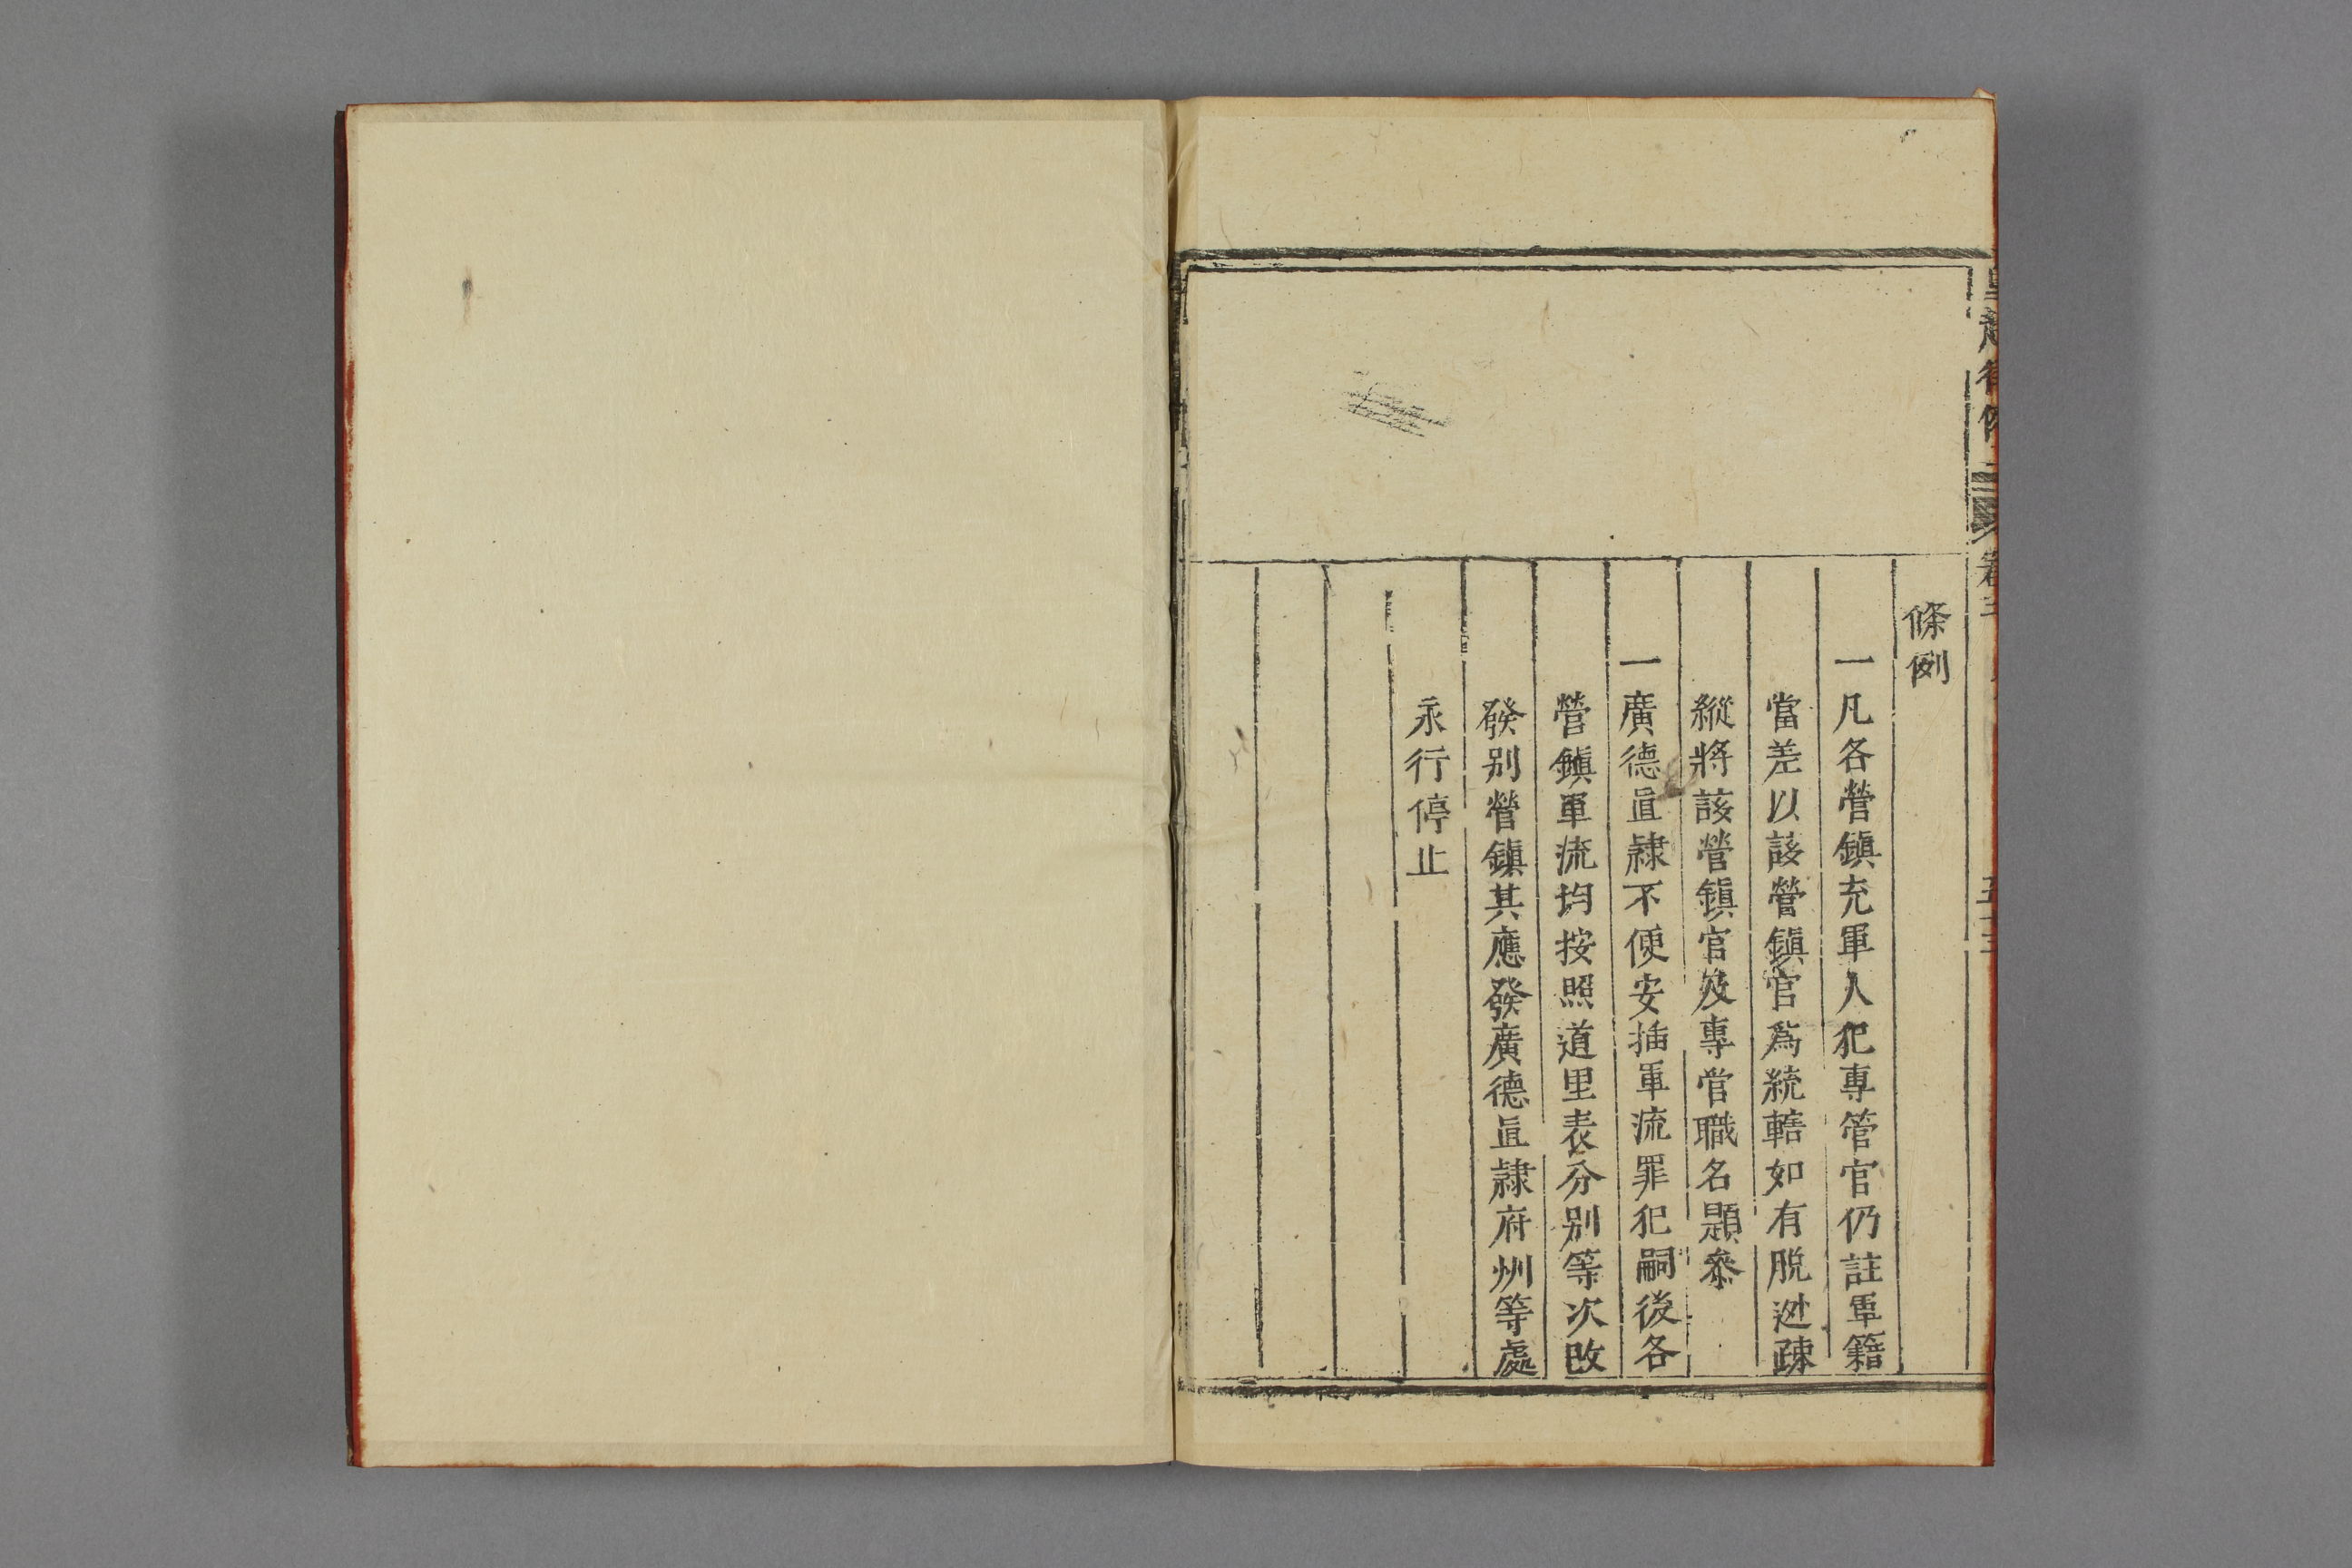 條例
一凡各營鎮充軍人犯專管官仍註軍籍
當差以該營鎮官爲統轄如有脱逃疎
縱將該營鎮官及專管職名題參
一廣德直隸不便安插軍流罪犯嗣後各
營鎮軍流均按照道里表分别等次改
發别營鎮其應發廣德直隸府州等處
永行停止